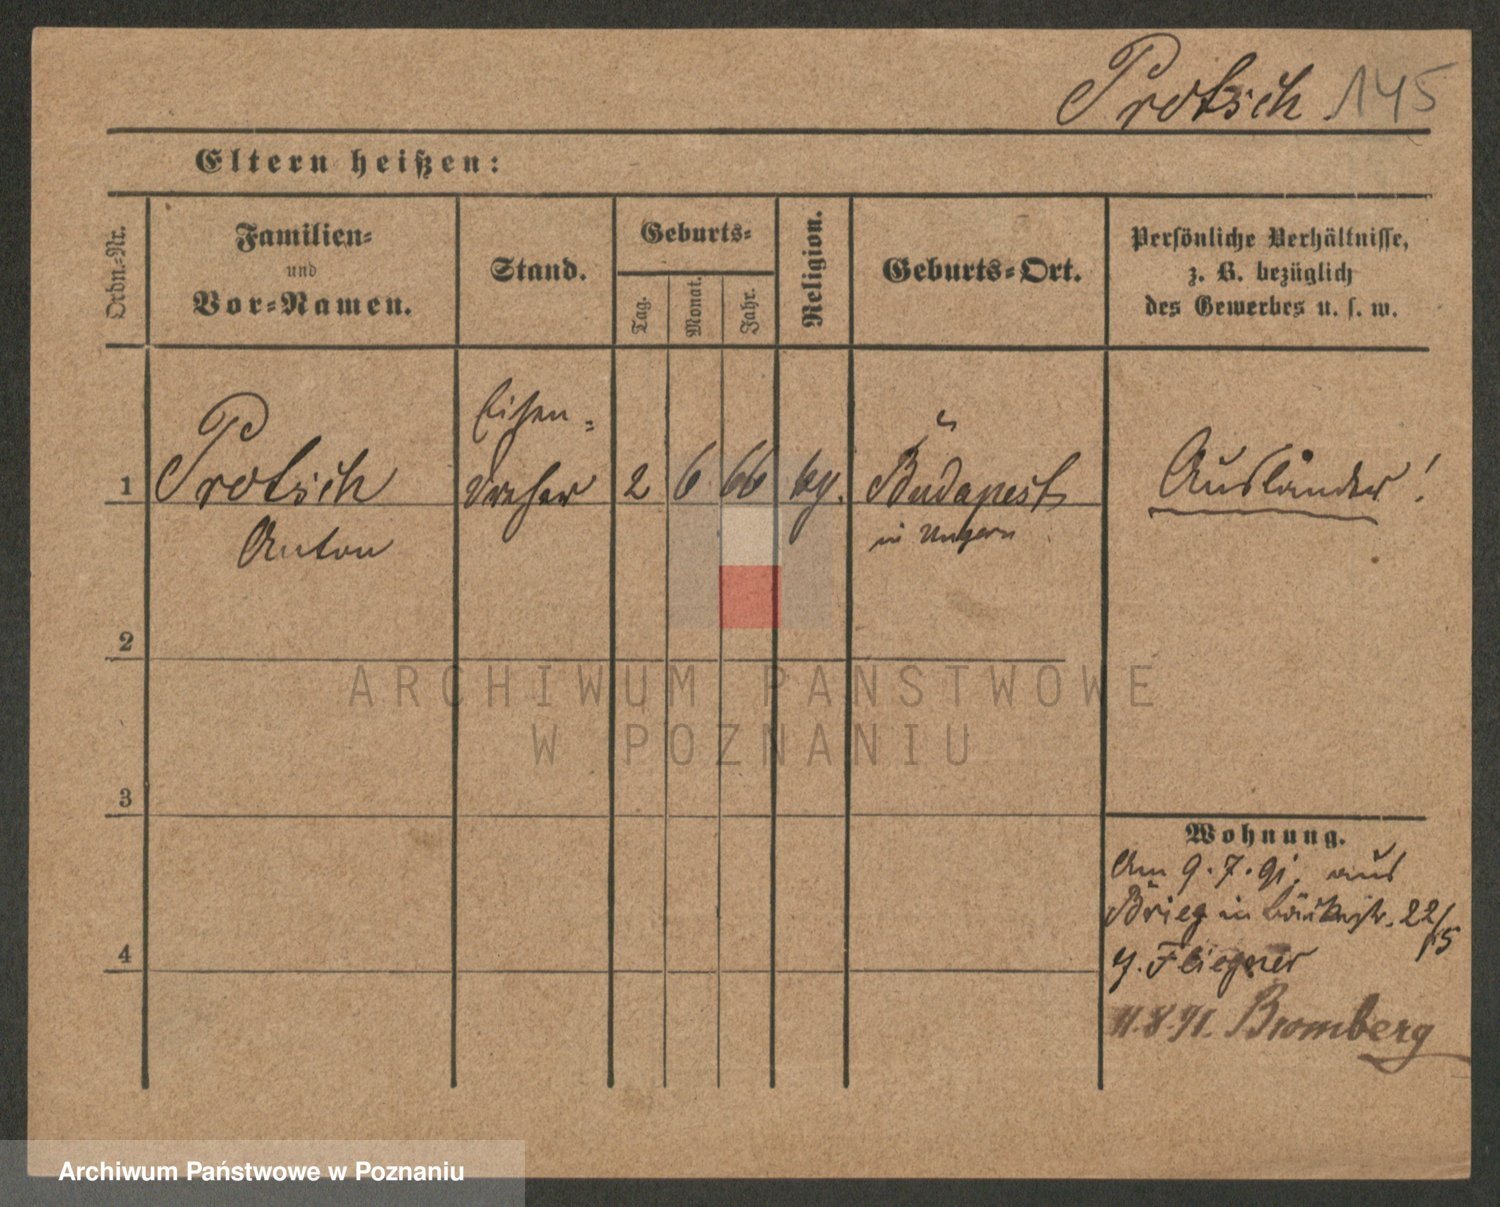 Protsch 145
Eltern heißen:
Ordn.-Nr.
Familien-
und
Vor-Namen.
Stand.
Geburts-
Tag.
Monat.
Jahr.
Religion.
Geburts-Ort.
Persönliche Verhältnisse,
z. B. bezüglich
des Gewerbes u. s. w.
Eisen-
1 Protsch dreher 2 6 66 Budapest Ausländer!
Anton in Ungarn
2
3
4
ARCHIWUM PAŃSTWOWE
W POZNANIU
Wohnung.
Am 9.7.91. aus
Brieg in 22/15
Fliegner
11.8.91. Bromberg
Archiwum Państwowe w Poznaniu